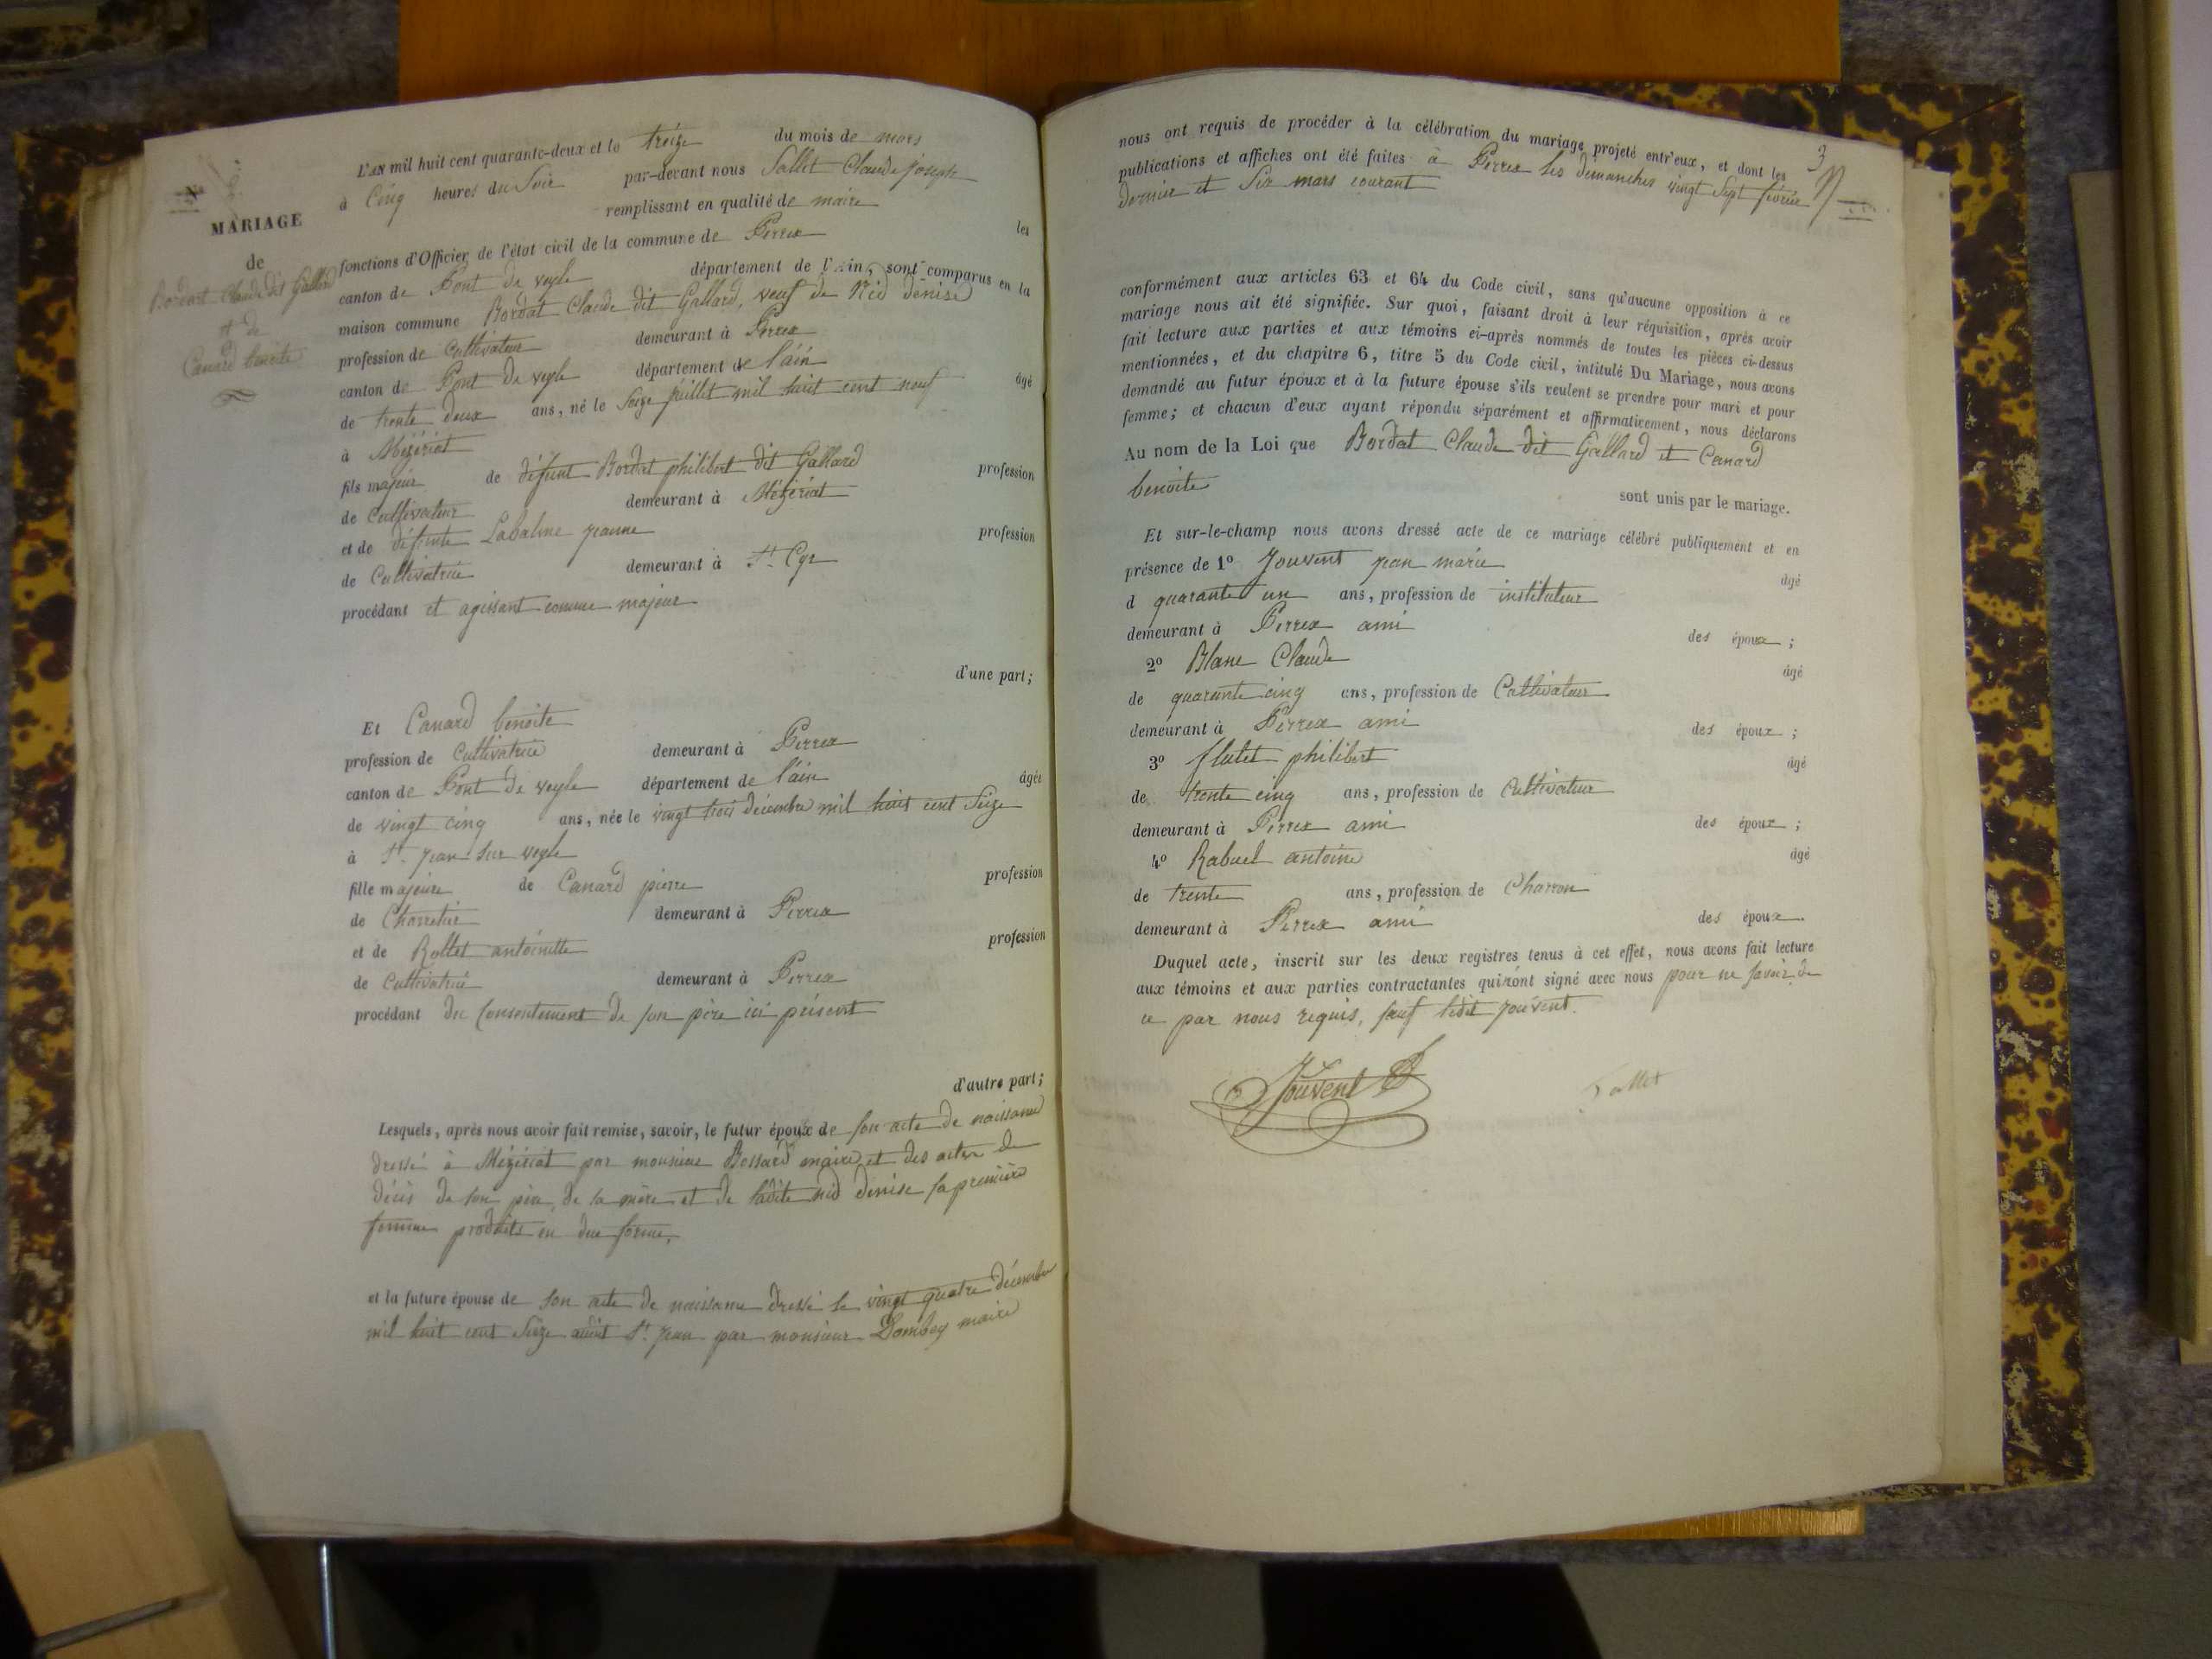 MARIAGE
de
Bordat Claude dit Gallard
et de
Canard benoite
L'AN mil huit cent quarante-deux et le treize du mois de mars
à Cinq heures du Soir par-devant nous Sallet Claude joseph
remplissant en qualité de maire les
fonctions d'Officier de l'état civil de la commune de Perrex
canton de Pont de veyle département de l'Ain, sont comparus en la
maison commune Bordat Claude dit Gallard, veuf de Nid denise
profession de Cultivateur demeurant à Perrex
canton de Pont de veyle département de l'ain âgé
de trente deux ans, né le Seize juillet mil huit cent neuf
à Mézériat
fils majeur de défunt Bordat philibert dit Gallard profession
de Cultivateur demeurant à Mézériat
et de défunte Labalme jeanne profession
de Cultivatrice demeurant à St. Cyr
procédant et agissant comme majeur
d'une part;
Et Canard benoite
profession de Cultivatrice demeurant à Perrex
canton de Pont de veyle département de l'ain âgée
de vingt cinq ans, née le vingt trois décembre mil huit cent Seize
à St. jean sur veyle
fille majeure de Canard pierre profession
de Charretier demeurant à Perrex
et de Rollet antoinette profession
de Cultivatrice demeurant à Perrex
procédant du Consentement de son père ici présent
d'autre part;
Lesquels, après nous avoir fait remise, savoir, le futur époux de son acte de naissance
dressé à Mézériat par monsieur Bossard maire, et des actes de
décès de son père, de sa mère et de ladite nid denise sa première
femme produits en due forme,
et la future épouse de son acte de naissance dressé le vingt quatre décembre
mil huit cent Seize audit St. jean par monsieur Dombey maire
3
nous ont requis de procéder à la célébration du mariage projeté entr'eux, et dont les
publications et affiches ont été faites à Perrex les dimanches vingt Sept février
dernier et Six mars courant
conformément aux articles 63 et 64 du Code civil, sans qu'aucune opposition à ce
mariage nous ait été signifiée. Sur quoi, faisant droit à leur réquisition, après avoir
fait lecture aux parties et aux témoins ci-après nommés de toutes les pièces ci-dessus
mentionnées, et du chapitre 6, titre 5 du Code civil, intitulé Du Mariage, nous avons
demandé au futur époux et à la future épouse s'ils veulent se prendre pour mari et pour
femme; et chacun d'eux ayant répondu séparément et affirmativement, nous déclarons
Au nom de la Loi que Bordat Claude dit Gallard et Canard
benoite
sont unis par le mariage.
Et sur-le-champ nous avons dressé acte de ce mariage célébré publiquement et en
présence de 1º Jouvent jean marie âgé
d quarante un ans, profession de instituteur
demeurant à Perrex ami des époux;
2º Blanc Claude âgé
de quarante cinq ans, profession de Cultivateur
demeurant à Perrex ami des époux;
3º flutet philibert âgé
de trente cinq ans, profession de Cultivateur
demeurant à Perrex ami des époux;
4º Rabuel antoine âgé
de trente ans, profession de Charron
demeurant à Perrex ami des époux.
Duquel acte, inscrit sur les deux registres tenus à cet effet, nous avons fait lecture
aux témoins et aux parties contractantes qui n'ont signé avec nous pour ne savoir de
ce par nous requis, sauf ledit jouvent.
Jouvent Sallet